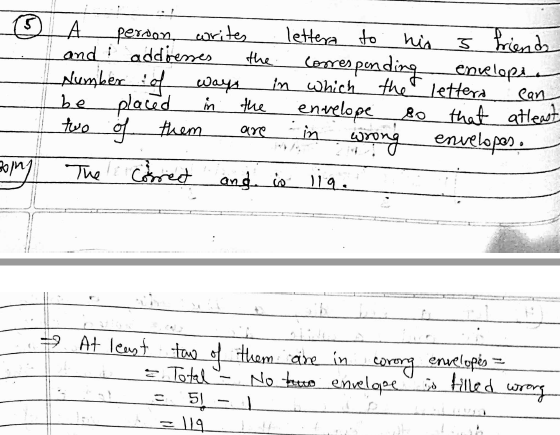 5 A person writes letters to his 5 friends
and addresses the corresponding envelope.
Number of ways in which the letters can
be placed in the envelope so that atleast
two of them are in wrong envelopes.
The Correct ans. is 119.
⇒ At least two of them are in wrong envelopes =
= Total - No envelope is filled wrong
= 5! - 1
= 119